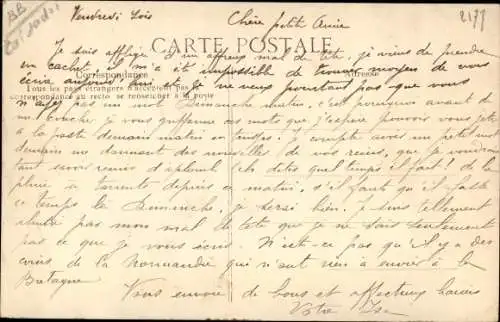 Vendredi soir Chère petite amie
2177
CARTE POSTALE
Je suis affligé d'un affreux mal de tête, je viens de prendre
un cachet, il m'a été impossible de trouver moyen de vous
Correspondance Adresse
écrire
Tous les pays étrangers n'acceptent pas la
je ne veux pourtant pas que vous
correspondance au recto se renseigner à la
n'ayez pas un mot Dimanche matin, c'est pourquoi avant de
me coucher je vous griffonne ces mots que j'espère pouvoir vous jeter
à la poste demain matin en Je compte avoir un petit mot
demain me donnant des nouvelles de vos reins, que je voudrais
tant savoir remis d'aplomb. dites quel temps il fait! de la
pluie à depuis ce matin, s'il faut qu'il fasse
ce temps là Dimanche, je serai bien. Je suis tellement
mon mal de tête que je ne sais seulement
pas ce que je vous écris. N'est-ce pas qu'il y a des
coins de la Normandie qui n'ont rien à envier à la
Bretagne Vous envoie de bons et affectueux baisers
Votre